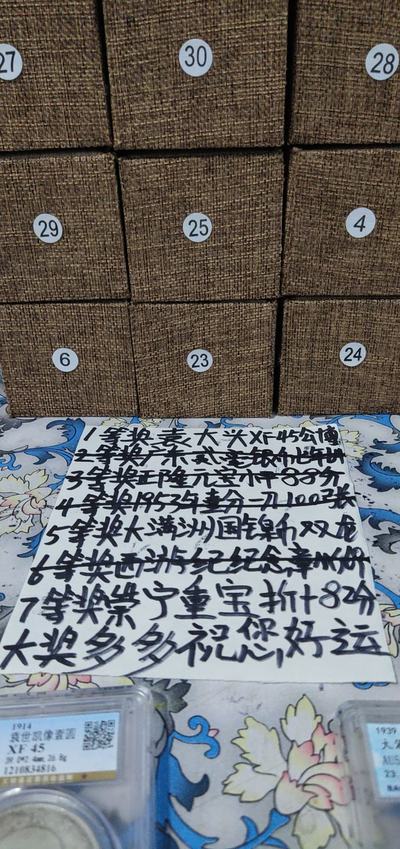 27
30
28
29
25
4
6
23
24
1等奖袁大头XF45公博
2等奖广东
3等奖正隆元宝小平88分
4等奖1953年壹分一九100张
5等奖大满洲国镍币双龙
6等奖西
纪念章
7等奖崇宁重宝折十82分
大奖多多祝您好运
1914
袁世凯像壹圆
XF 45
1210834816
1939